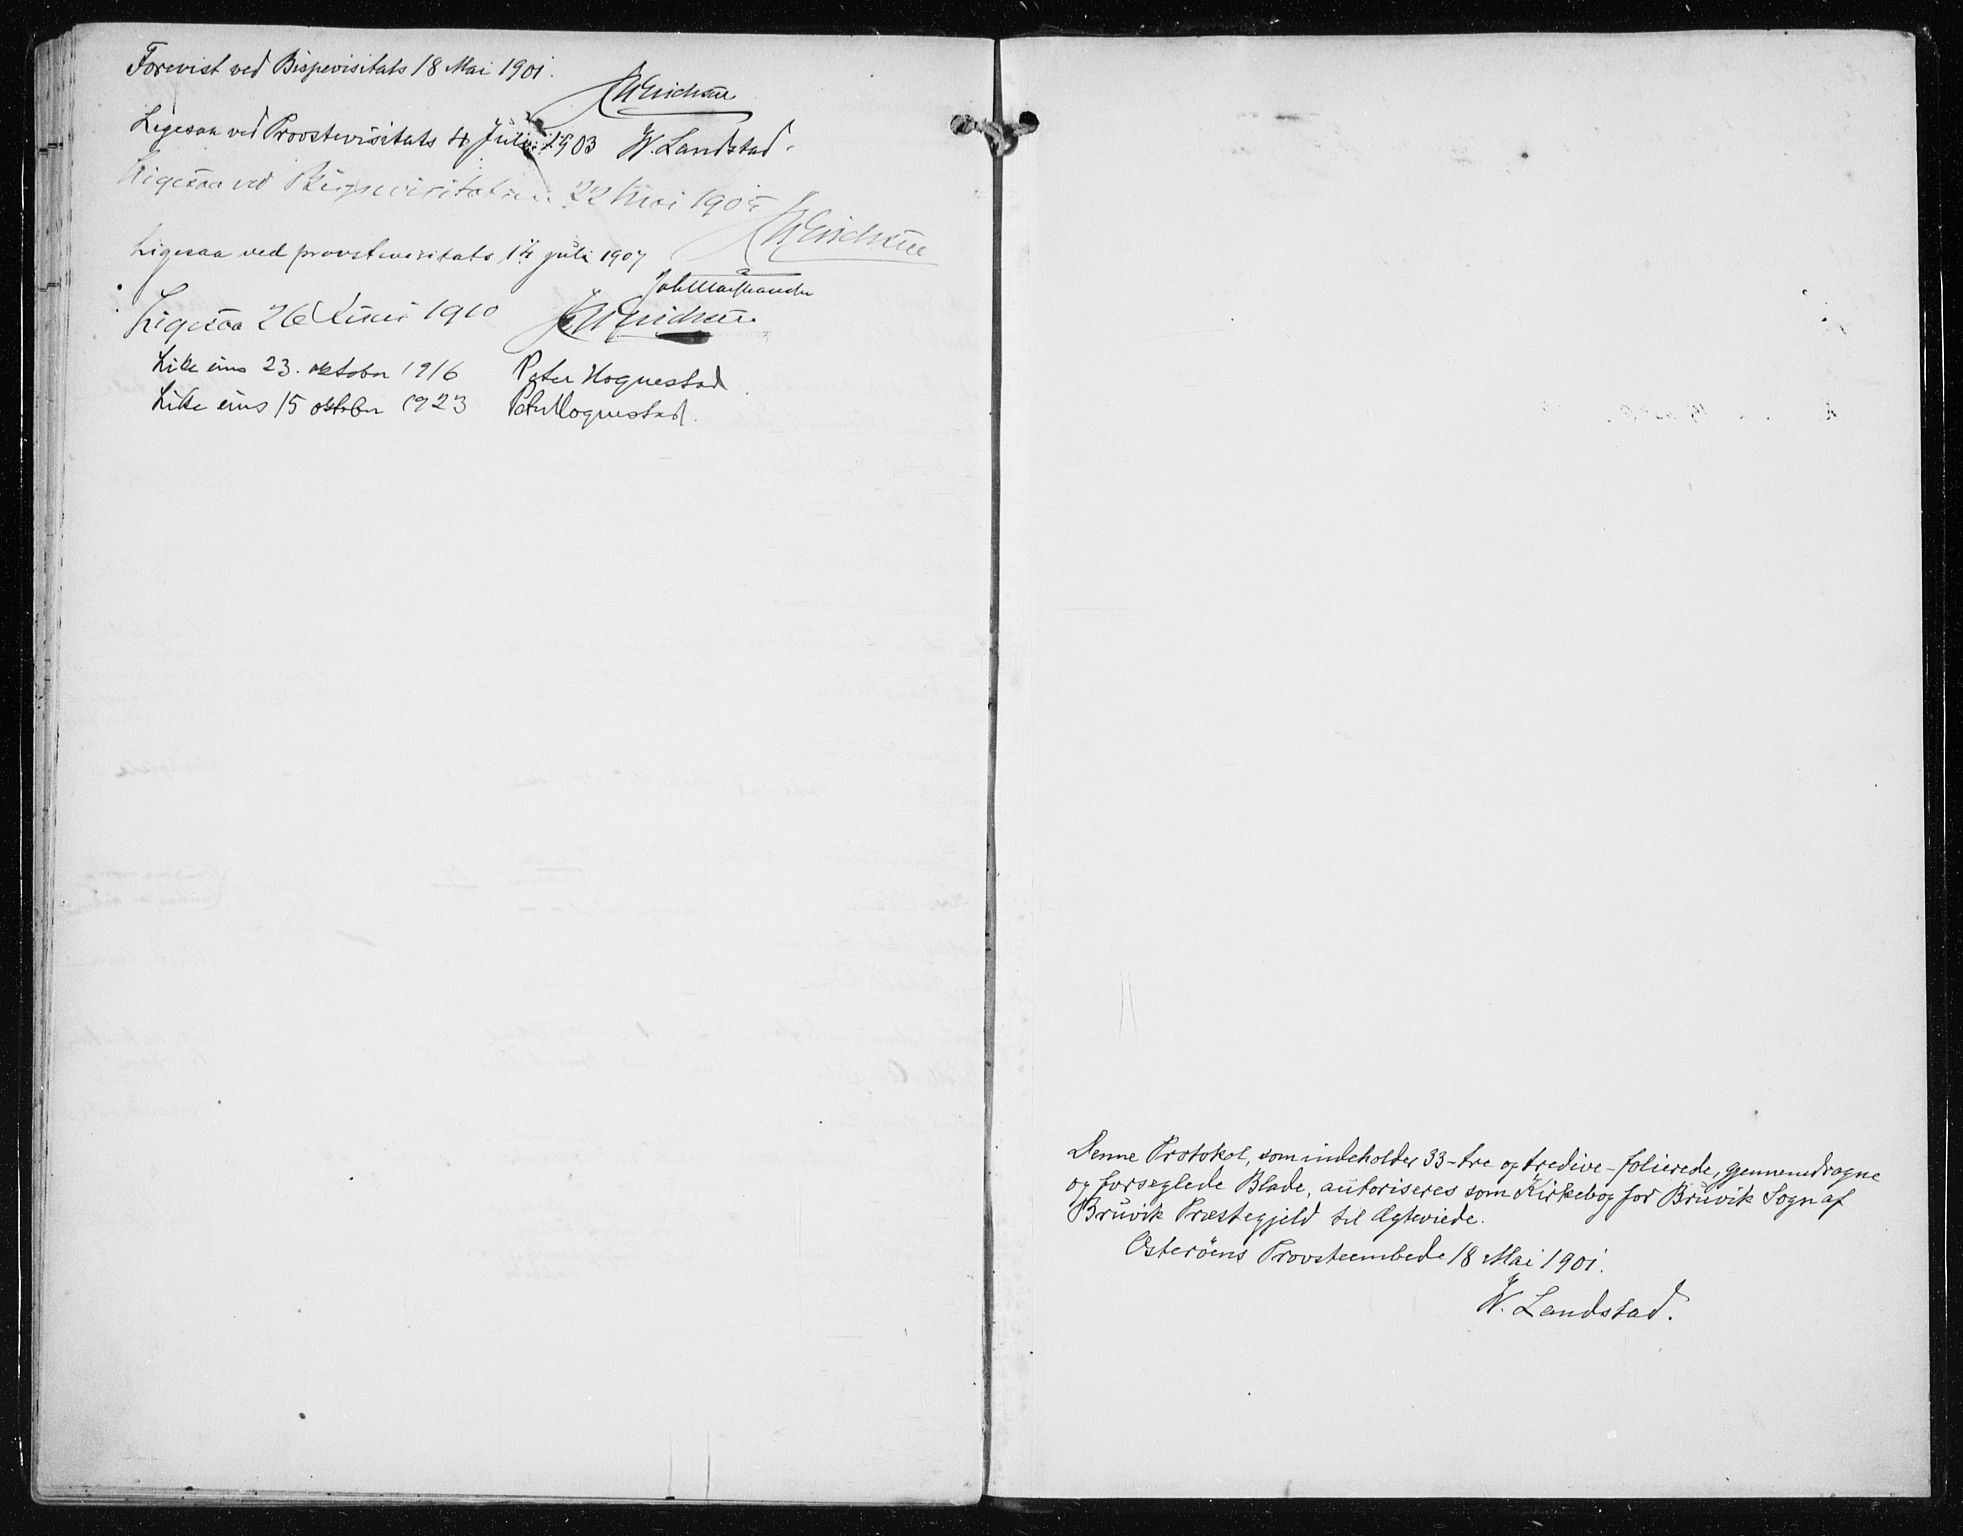 Forevist ved Bispevisitats 18 Mai 1901.
Ligesaa ved Provstevisitats 4 Juli 1903 W. Landstad.
Ligesaa ved Bispevisitatsen 22 Mai 1905
Ligesaa ved provstevisitats 14 juli 1907
Ligesaa 26 Juni 1910
Like eins 23. oktober 1916 Peter Hognestad
Like eins 15 oktober 1923 Peter Hognestad.
Denne Protokol, som indeholder 33-tre og tredive-folierede, gjennemdragne
og forseglede Blade, autoriseres som Kirkebog for Bruvik Sogn af
Bruvik Præstegjeld til Ægteviede.
Osterøens Provsteembede 18 Mai 1901.
W. Landstad.